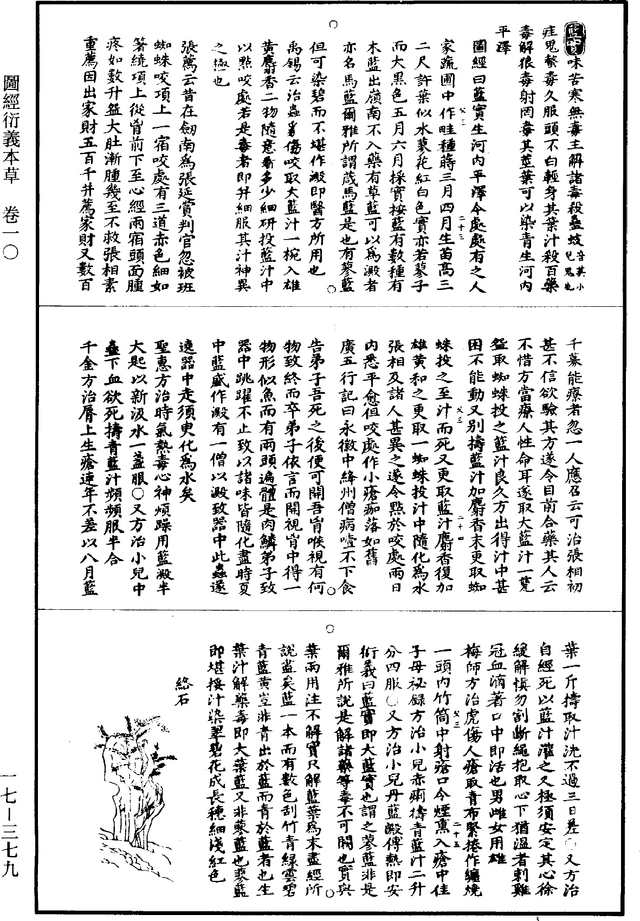 圖經衍義本草　卷一〇
一七—三七九
藍實味苦寒無毒主解諸毒殺蟲蚑音其小兒鬼也
疰鬼螫毒久服頭不白輕身其葉汁殺百藥
毒解狼毒射罔毒其莖葉可以染青生河內
平澤
圖經曰藍實生河內平澤今處處有之人
家蔬圃中作畦種蒔三月四月生苗高三
二尺許葉似水蓼花紅白色實亦若蓼子
而大黑色五月六月採實按藍有數種有
木藍出嶺南不入藥有草藍可以為澱者
亦名馬藍爾雅所謂葴馬藍是也有蓼藍
但可染碧而不堪作澱即醫方所用也
禹錫云治蟲豸傷咬取大藍汁一椀入雄
黃麝香二物隨意看多少細研投藍汁中
以點咬處若是毒者即并細服其汁神異
之極也
張薦云昔在劍南為張延賞判官忽被班
蜘蛛咬項上一宿咬處有三道赤色細如
箸繞項上從胷前下至心經兩宿頭面腫
疼如數升盌大肚漸腫幾至不救張相素
重薦因出家財五百千并薦家財又數百
千募能療者忽一人應召云可治張相初
甚不信欲驗其方遂令目前合藥其人云
不惜方當療人性命耳遂取大藍汁一甆
盌取蜘蛛投之藍汁良久方出得汁中甚
困不能動又別擣藍汁加麝香末更取蜘
蛛投之至汁而死又更取藍汁麝香復加
雄黃和之更取一蜘蛛投汁中隨化為水
張相及諸人甚異之遂令點於咬處兩日
內悉平愈但咬處作小瘡痂落如舊
廣五行記曰永徽中絳州僧病噎不下食
告弟子吾死之後便可開吾胷喉視有何
物致終而卒弟子依言而開視胷中得一
物形似魚而有兩頭遍體是肉鱗弟子致
器中跳躍不止致以諸味皆隨化盡時夏
中藍盛作澱有一僧以澱致器中此蟲遂
遶器中走須更化為水矣
聖惠方治時氣熱毒心神煩躁用藍澱半
大匙以新汲水一盞服○又方治小兒中
蠱下血欲死擣青藍汁頻頻服半合
千金方治脣上生瘡連年不差以八月藍
葉一斤擣取汁洗不過三日差○又方治
自經死以藍汁灌之又極須安定其心徐
緩解慎勿割斷繩抱取心下猶溫者刺雞
冠血滴著口中即活也男雌女用雄
梅師方治虎傷人瘡取青布緊捲作纏燒
一頭內竹筒中射瘡口令煙熏入瘡中佳
子母祕錄方治小兒赤痢擣青藍汁二升
分四服○又方治小兒丹藍澱傅熱即安
衍義曰藍實即大藍實也謂之蓼藍非是
爾雅所說是解諸藥等毒不可闕也實與
葉兩用注不解實只解藍葉為未盡經所
說盡矣藍一本而有數色刮竹青綠雲碧
青藍黃豈非青出於藍而青於藍者也生
葉汁解藥毒即大葉藍又非蓼藍也蓼藍
即堪揉汁染翠碧花成長穗細淺紅色
絡石